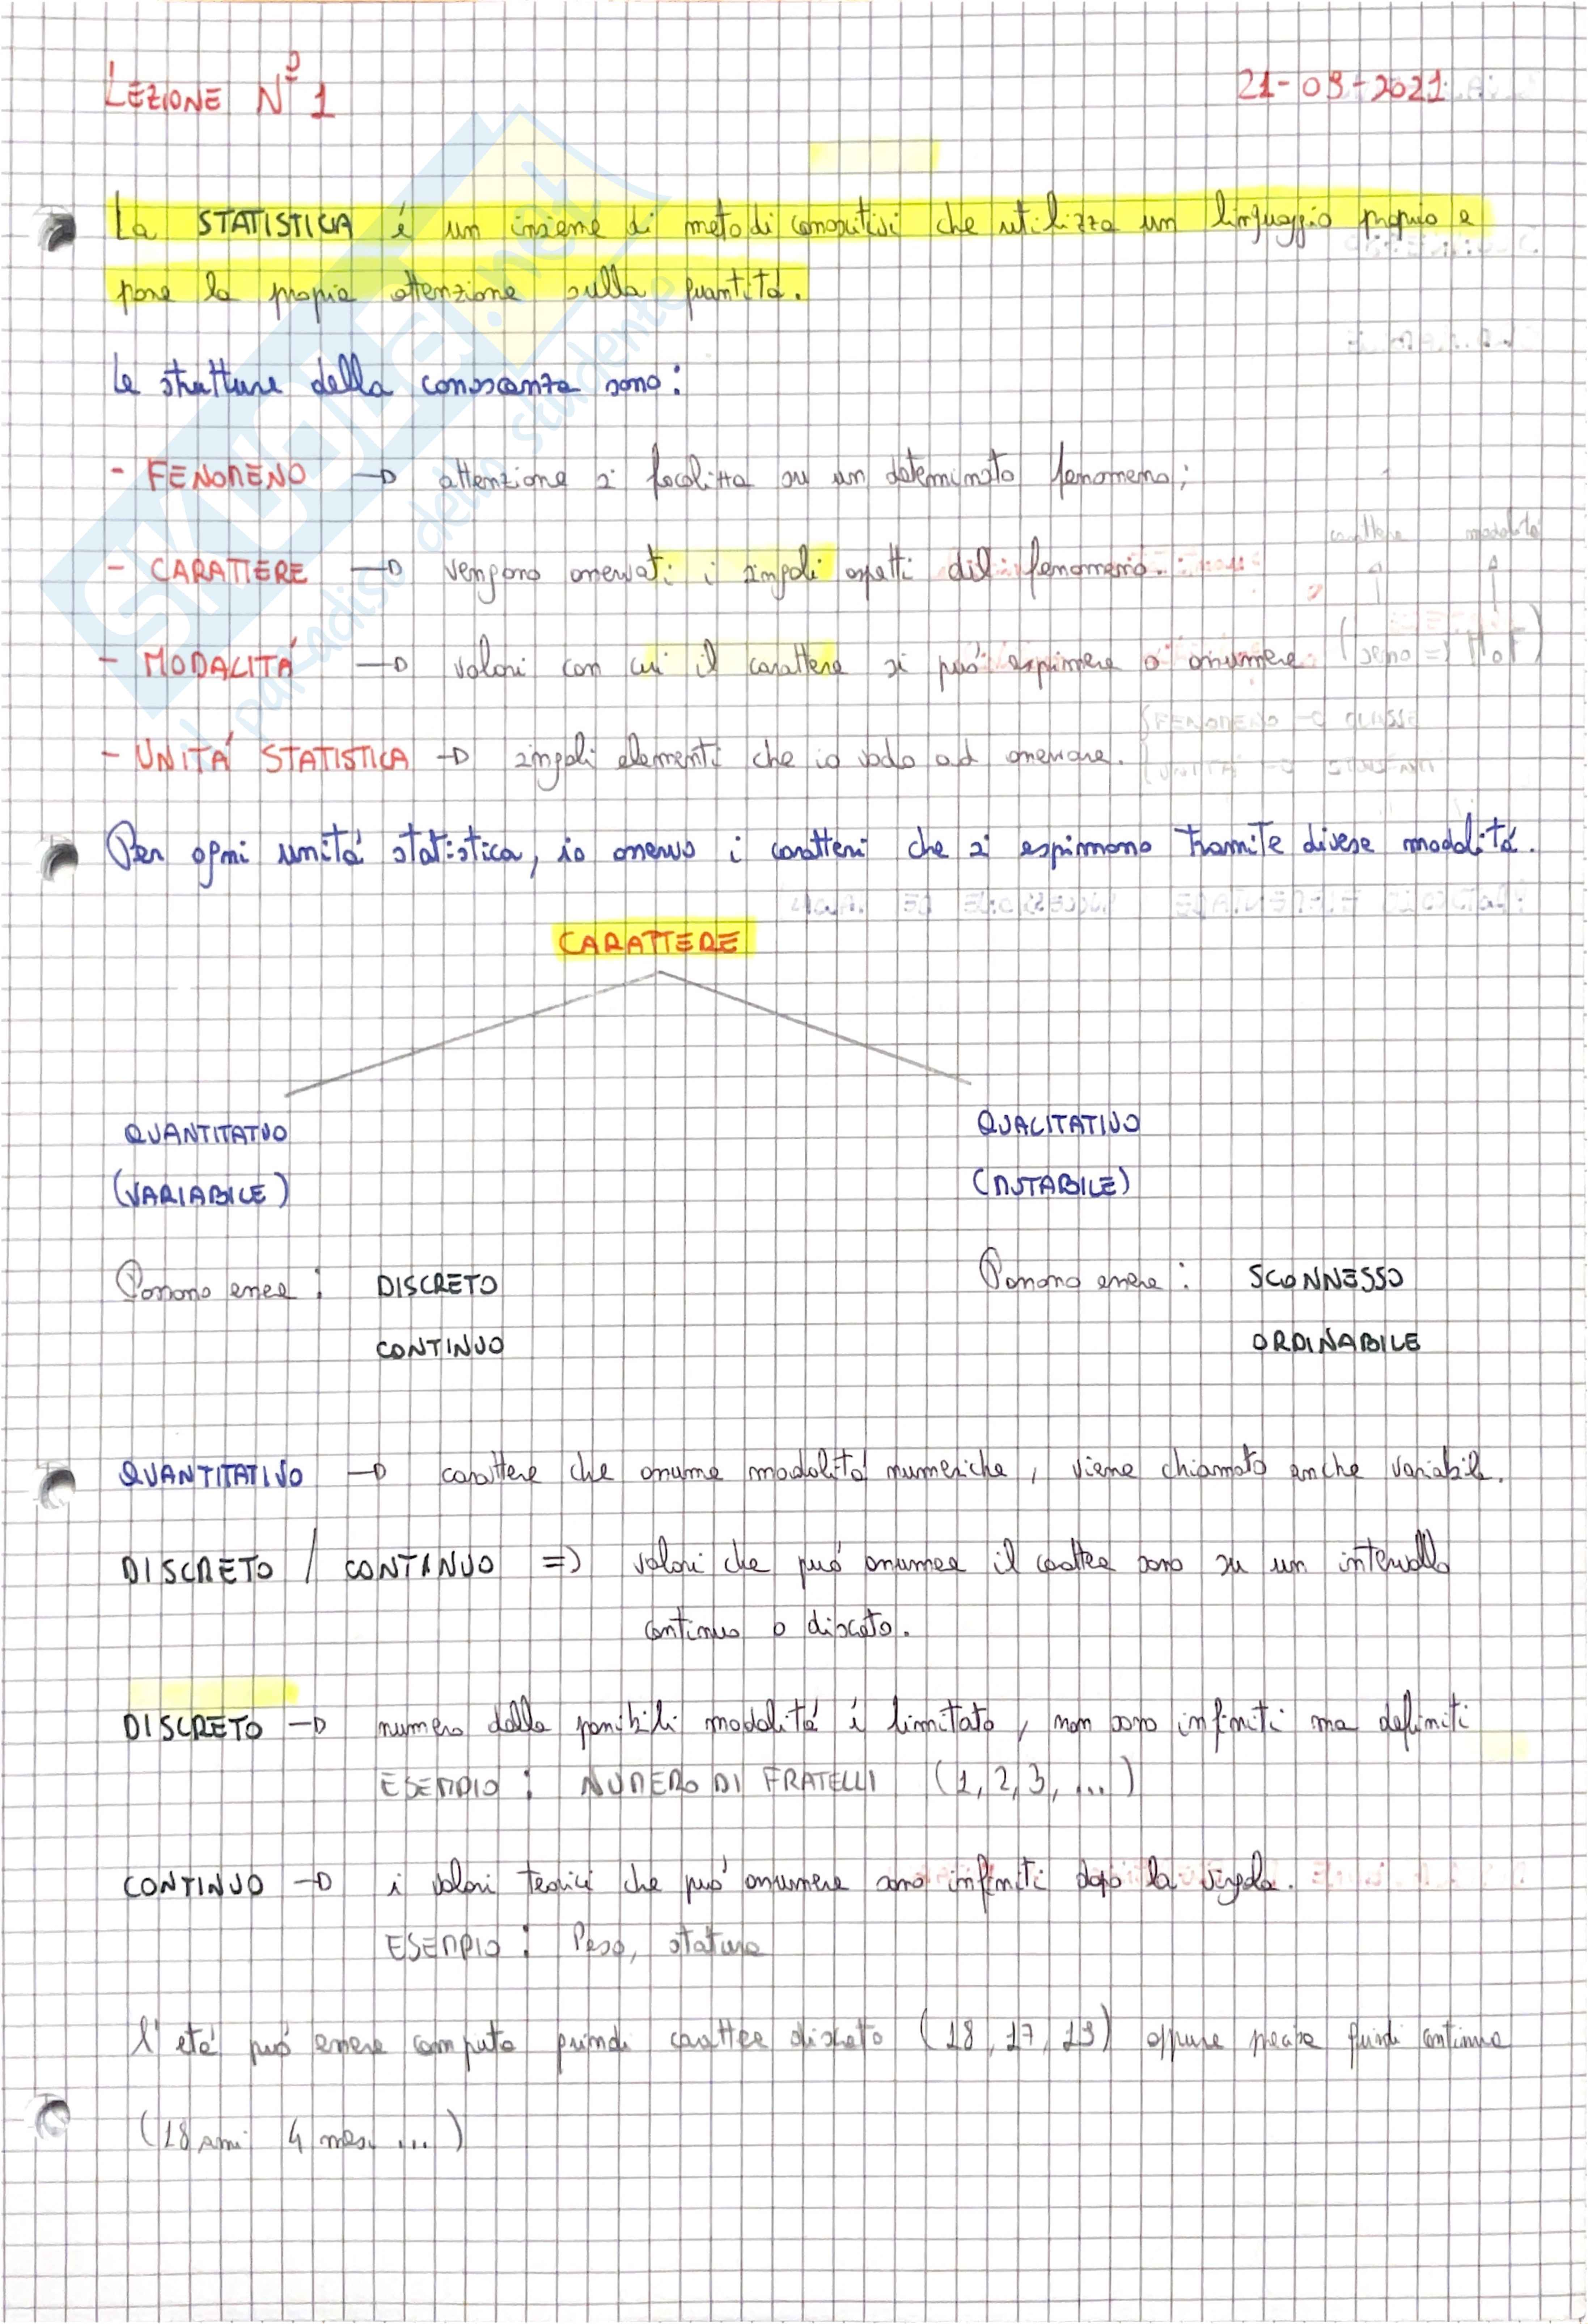 LEZIONE Nº 1
21-09-2021
La STATISTICA é un insieme di metodi conoscitivi che utilizza un linguaggio proprio e
pone la propia attenzione sulla quantitá.
Le strutture della conoscenza sono:
- FENOMENO → attenzione si focalizza su un determinato fenomeno;
- CARATTERE → vengono osservati i singoli aspetti del fenomeno.
- MODALITÁ → valori con cui il carattere si puó esprimere o assumere
- UNITÁ STATISTICA → singoli elementi che io vado ad osservare.
Per ogni unitá statistica, io osservo i caratteri che si esprimono tramite diverse modalitá.
CARATTERE
QUANTITATIVO
QUALITATIVO
(VARIABILE)
(MUTABILE)
Possono essere: DISCRETO
Possono essere: SCONNESSO
CONTINUO
ORDINABILE
QUANTITATIVO → carattere che assume modalitá numeriche, viene chiamato anche variabile.
DISCRETO / CONTINUO => valori che puó assumere il carattere sono su un intervallo
continuo o discreto.
DISCRETO → numero delle possibili modalitá é limitato, non sono infiniti ma definiti
ESEMPIO: NUMERO DI FRATELLI (1, 2, 3, ...)
CONTINUO → i valori teorici che puó assumere sono infiniti dopo la virgola.
ESEMPIO: Peso, statura
L'etá puó essere compiuta quindi carattere discreto (18, 17, 19) oppure precisa quindi continua
(18 anni 4 mesi ...)
SKUOLA.net
il paradiso dello studente